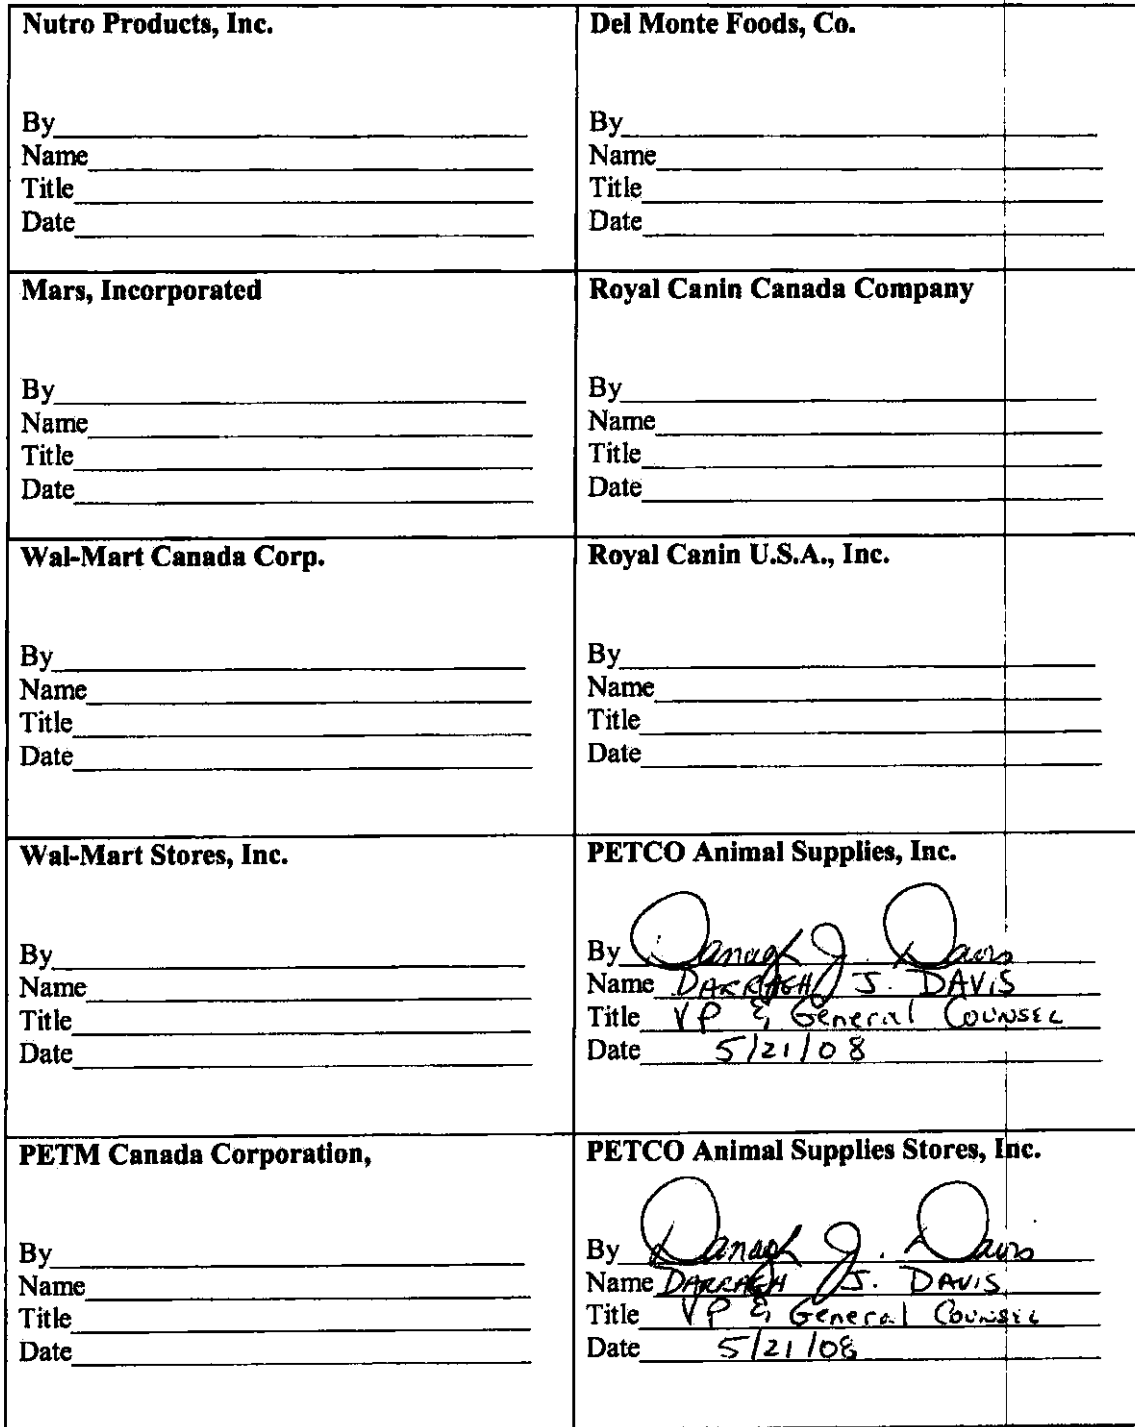 Nutro Products, Inc.
By
Name
Title
Date
Del Monte Foods, Co.
By
Name
Title
Date
Mars, Incorporated
By
Name
Title
Date
Royal Canin Canada Company
By
Name
Title
Date
Wal-Mart Canada Corp.
By
Name
Title
Date
Royal Canin U.S.A., Inc.
By
Name
Title
Date
Wal-Mart Stores, Inc.
By
Name
Title
Date
PETCO Animal Supplies, Inc.
By Darragh J. Davis
Name DARRAGH J. DAVIS
Title VP & General Counsel
Date 5/21/08
PETM Canada Corporation,
By
Name
Title
Date
PETCO Animal Supplies Stores, Inc.
By Darragh J. Davis
Name DARRAGH J. DAVIS
Title VP & General Counsel
Date 5/21/08